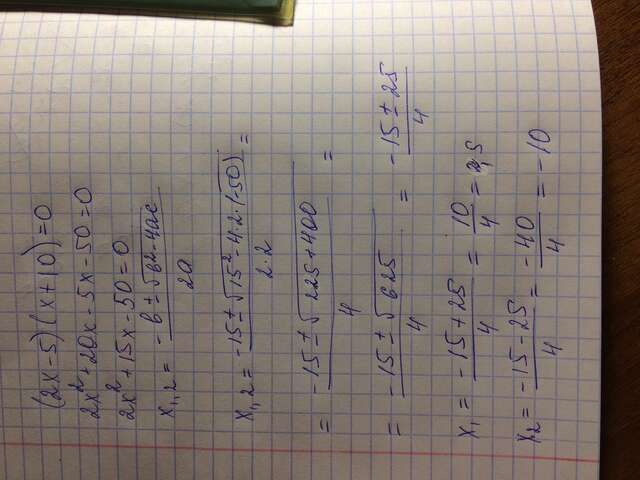 (2x-5)(x+10)=0
2x²+20x-5x-50=0
2x²+15x-50=0
x₁,₂ = (-b ± √(b²-4ac)) / 2a
x₁,₂ = (-15 ± √(15²-4·2·(-50))) / 2·2 =
= (-15 ± √(225+400)) / 4 =
= (-15 ± √625) / 4 = (-15 ± 25) / 4
x₁ = (-15+25) / 4 = 10/4 = 2,5
x₂ = (-15-25) / 4 = -40/4 = -10